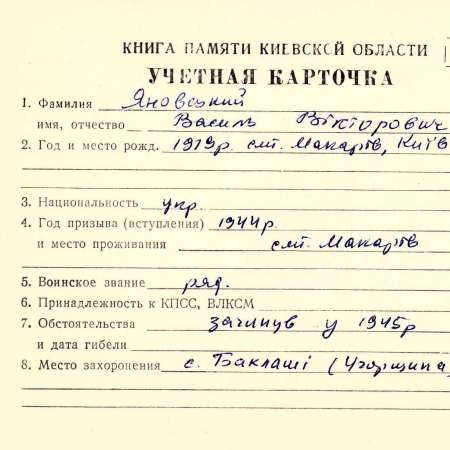 КНИГА ПАМЯТИ КИЕВСКОЙ ОБЛАСТИ
УЧЕТНАЯ КАРТОЧКА
1. Фамилия Яновський
имя, отчество Василь Вікторович
2. Год и место рожд. 1919р. смт. Макарів, Київ
3. Национальность укр.
4. Год призыва (вступления) 1944р.
и место проживания смт. Макарів
5. Воинское звание ряд.
6. Принадлежность к КПСС, ВЛКСМ
7. Обстоятельства загинув у 1945р
и дата гибели
8. Место захоронения с. Баклаші (Угорщина)